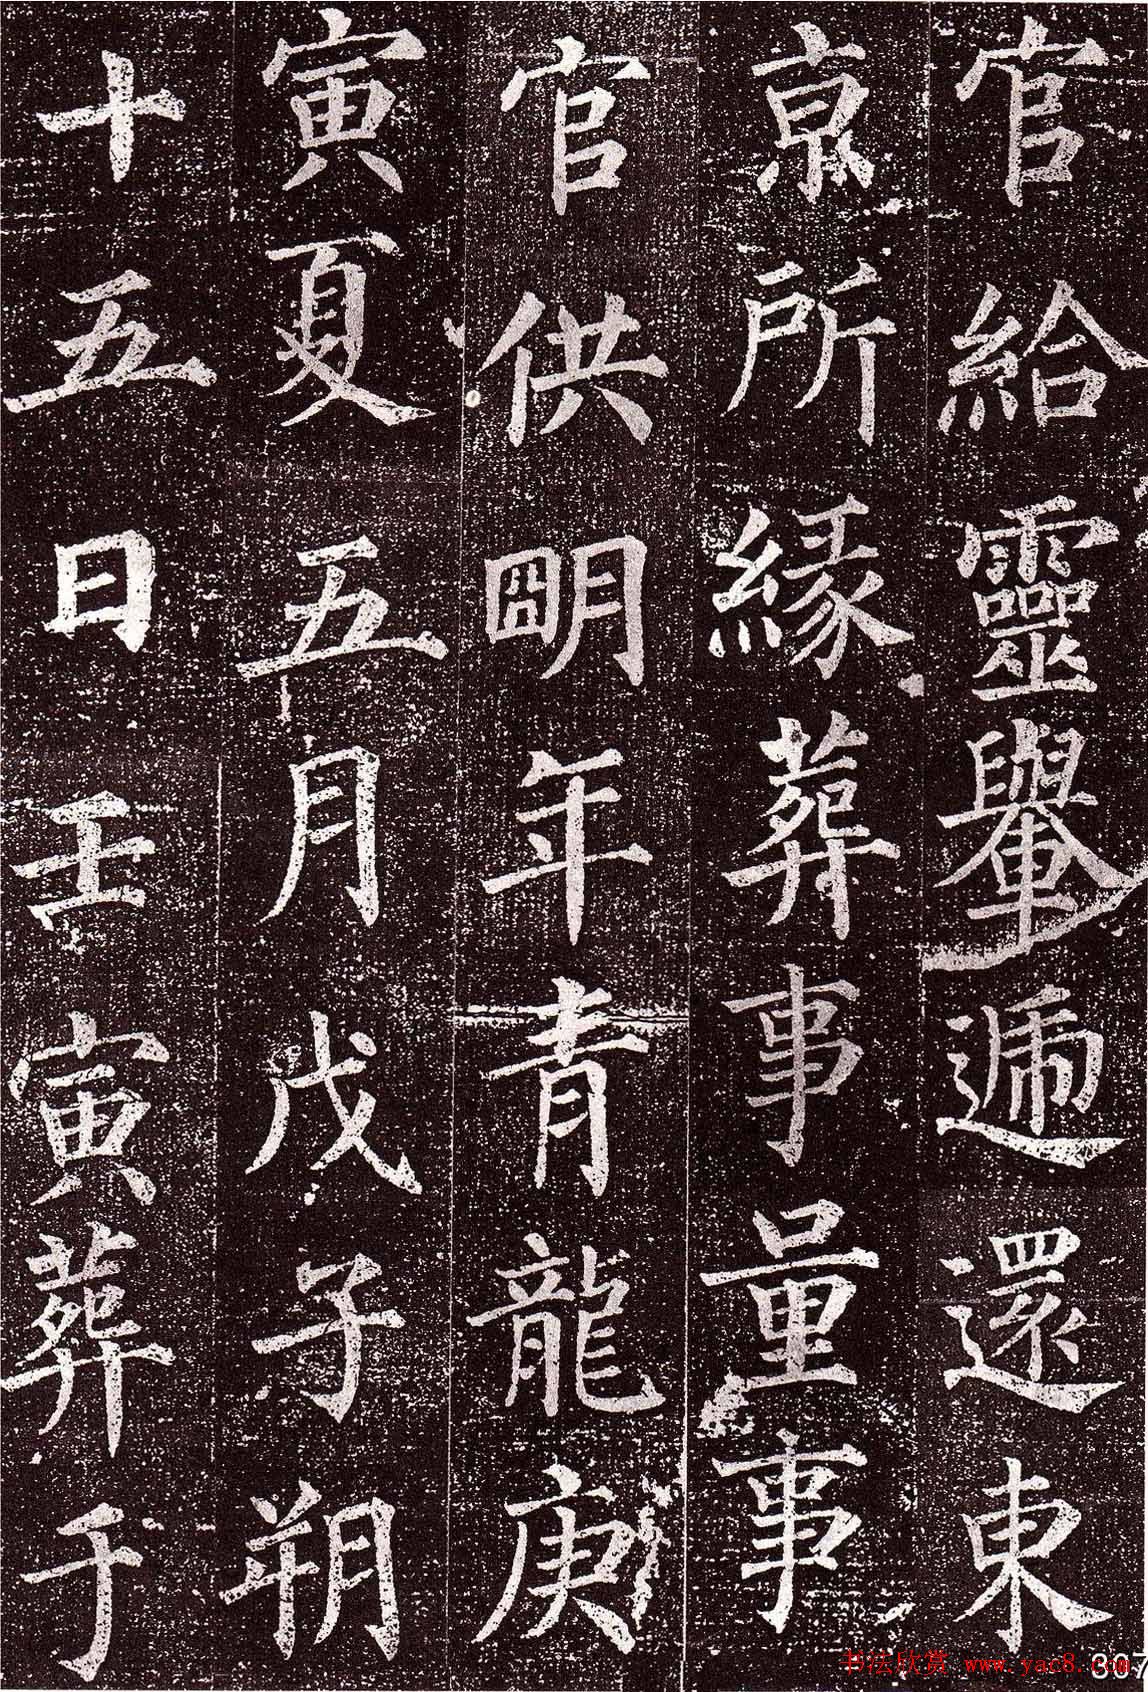 官給靈轝遞還東
京所緣葬事量事
官供明年青龍庚
寅夏五月戊子朔
十五日壬寅葬于
书法欣赏 www.yac8.com